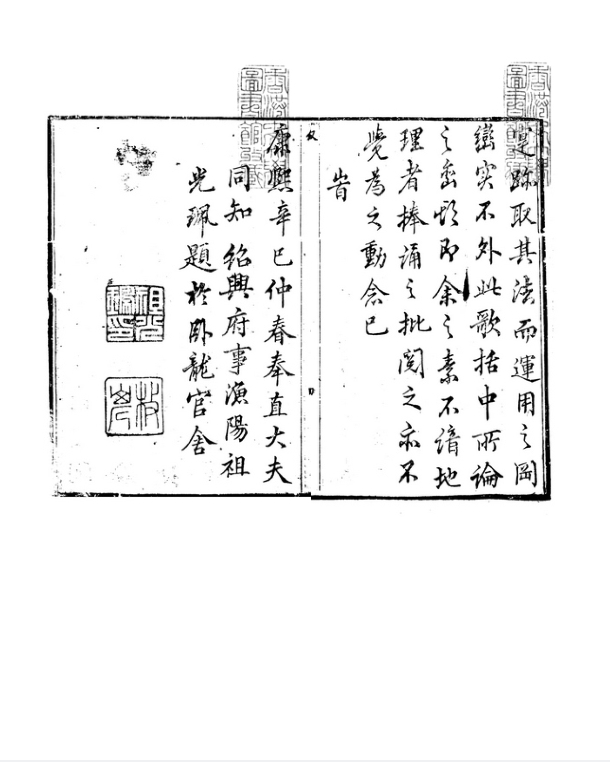 跡取其法而運用之岡
巒实不外此歌括中所論
之即余之素不諳地
理者捧誦之批閱之亦不
覺為之動念已
旹
康熙辛巳仲春奉直大夫
同知紹興府事漁陽祖
光珮題於卧龍官舍
祖光珮印